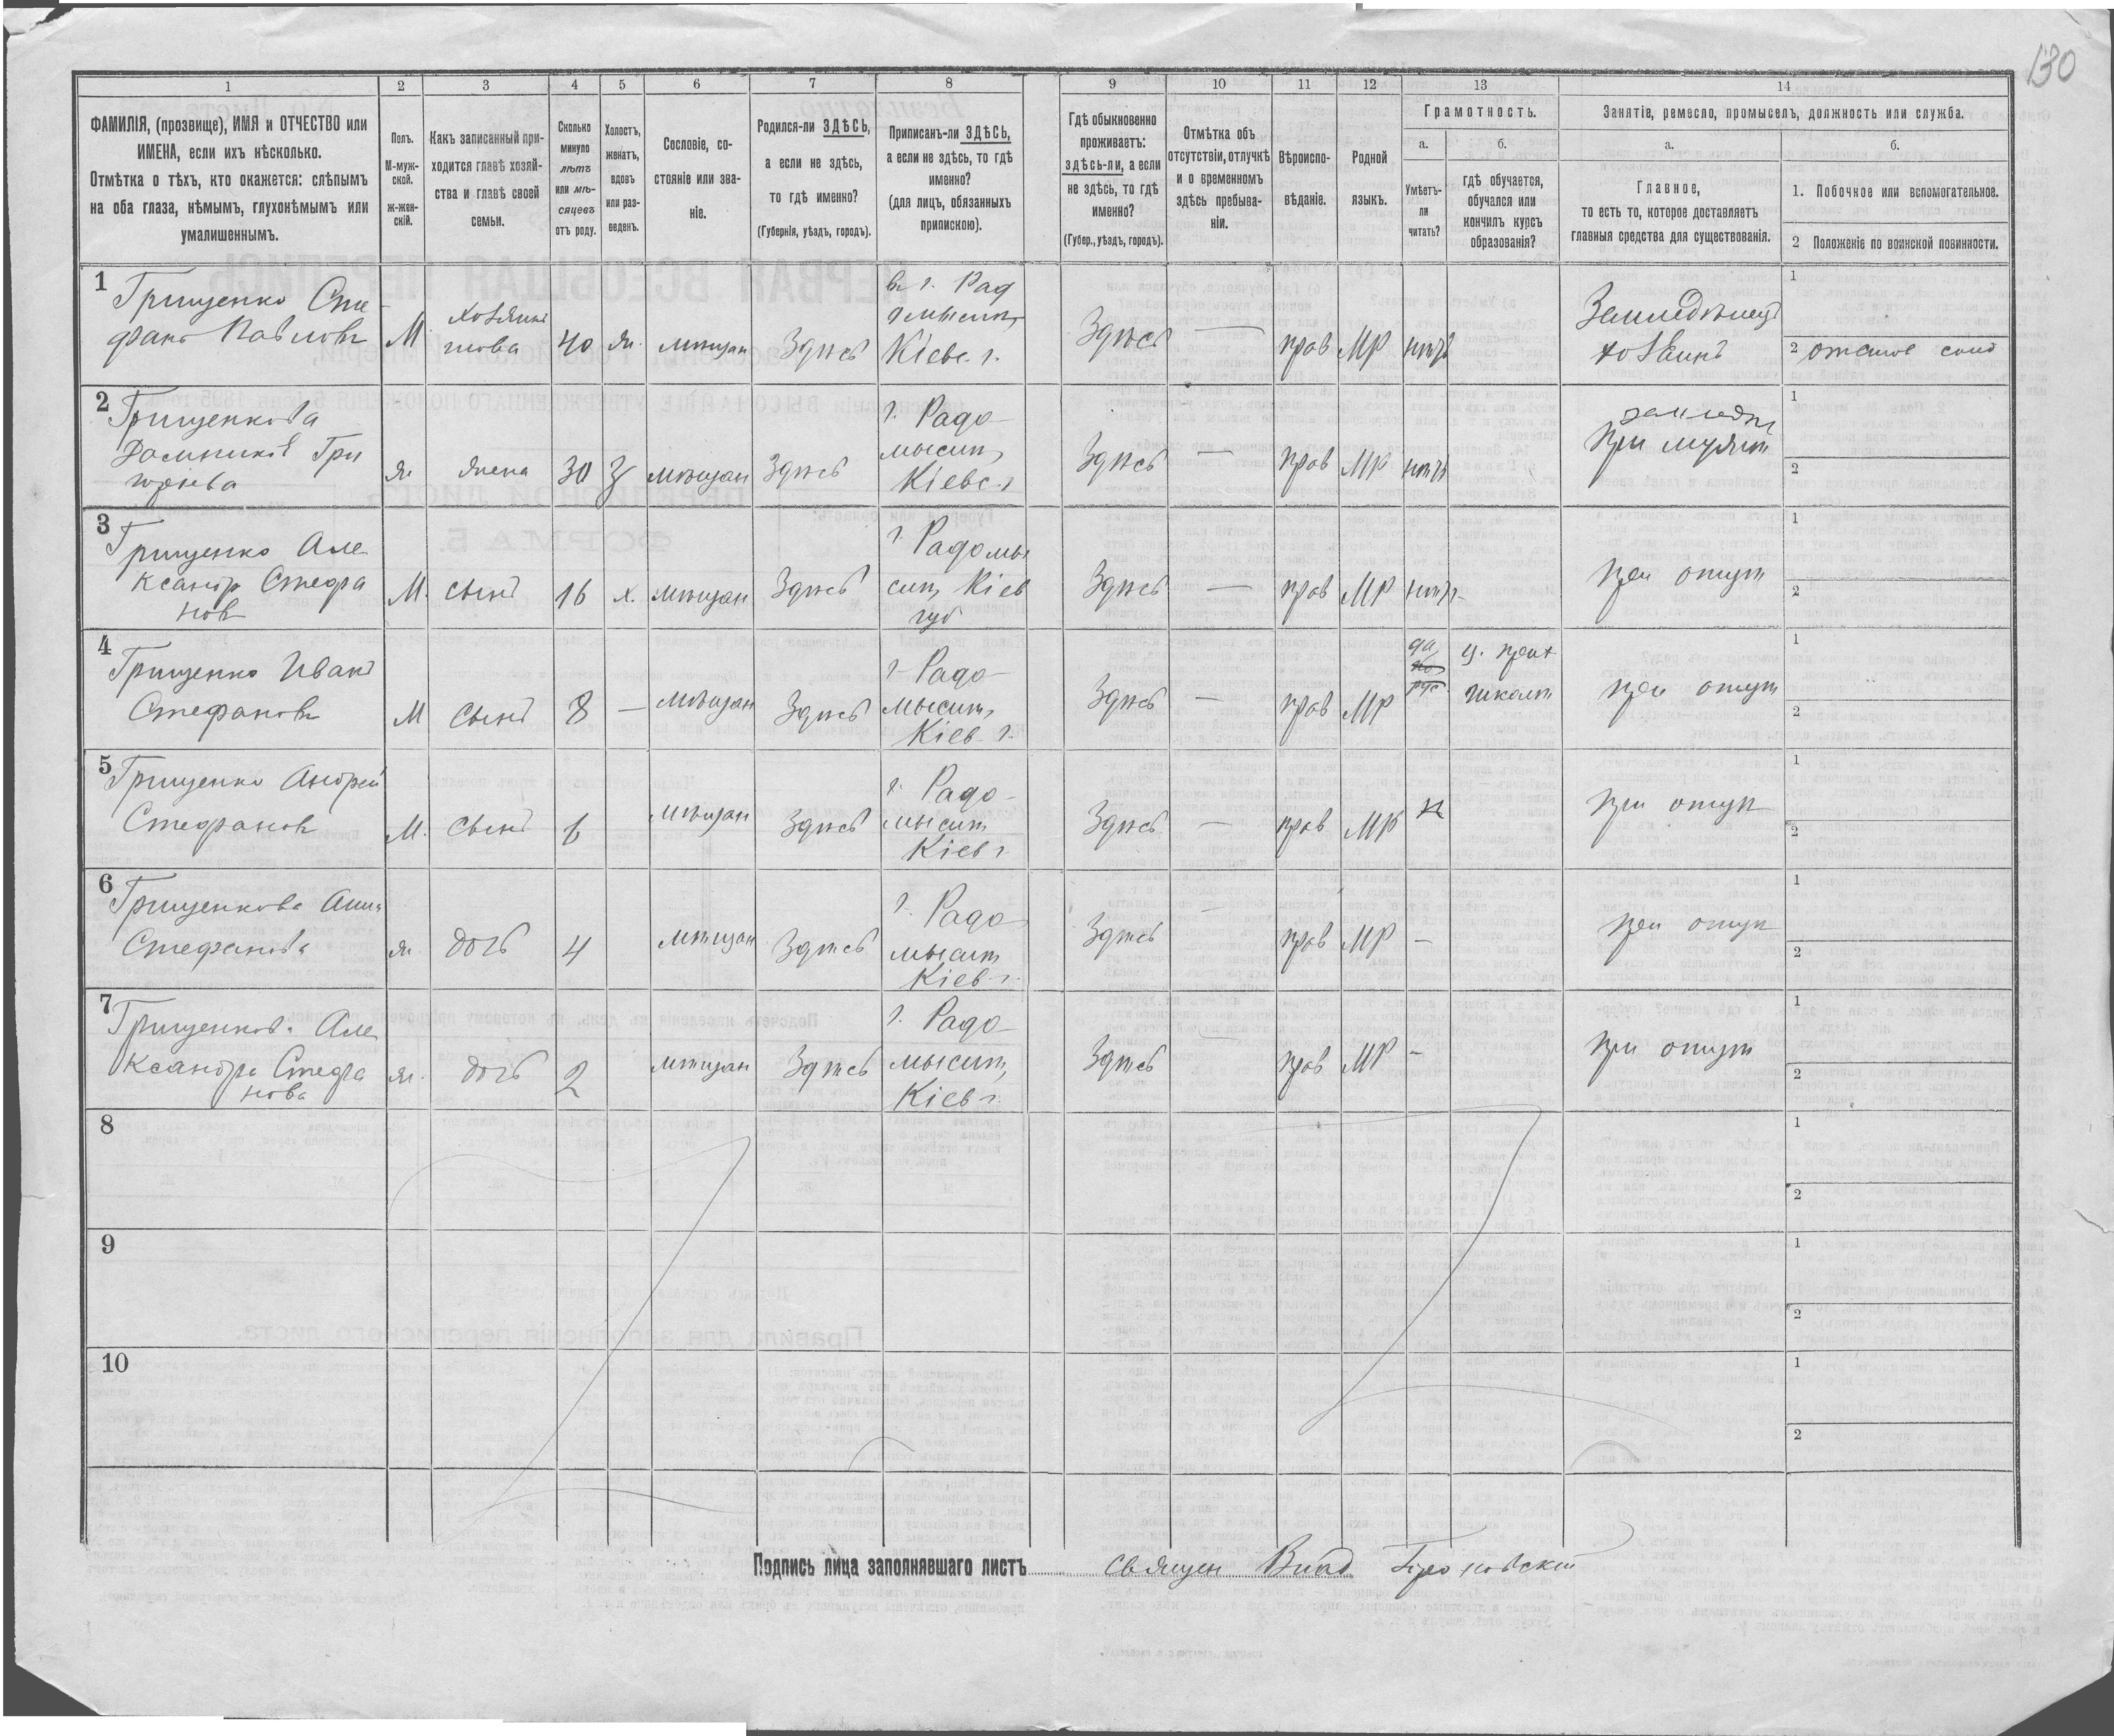 130
1 2 3 4 5 6 7 8 9 10 11 12 13 14
ФАМИЛІЯ, (прозвище), ИМЯ и ОТЧЕСТВО или
ИМЕНА, если ихъ нѣсколько.
Отмѣтка о тѣхъ, кто окажется: слѣпымъ
на оба глаза, нѣмымъ, глухонѣмымъ или
умалишеннымъ.
Полъ.
М-муж-
ской.
ж-жен-
скій.
Какъ записанный при-
ходится главѣ хозяй-
ства и главѣ своей
семьи.
Сколько
минуло
лѣтъ
или мѣ-
сяцевъ
отъ роду.
Холостъ,
женатъ,
вдовъ
или раз-
веденъ.
Сословіе, со-
стояніе или зва-
ніе.
Родился-ли ЗДѢСЬ,
а если не здѣсь,
то гдѣ именно?
(Губернія, уѣздъ, городъ).
Приписанъ-ли ЗДѢСЬ,
а если не здѣсь, то гдѣ
именно?
(для лицъ, обязанныхъ
припискою).
Гдѣ обыкновенно
проживаетъ:
здѣсь-ли, а если
не здѣсь, то гдѣ
именно?
(Губер., уѣздъ, городъ).
Отмѣтка объ
отсутствіи, отлучкѣ
и о временномъ
здѣсь пребыва-
ніи.
Вѣроиспо-
вѣданіе.
Родной
языкъ.
Грамотность.
а.
Умѣетъ-
ли
читать?
б.
гдѣ обучается,
обучался или
кончилъ курсъ
образованія?
Занятіе, ремесло, промыселъ, должность или служба.
а.
Главное,
то есть то, которое доставляетъ
главныя средства для существованія.
б.
1. Побочное или вспомогательное.
2 Положеніе по воинской повинности.
1
Грищенко Сте-
фанъ Павловъ
М
хозяинъ
глова
40
мѣщан
Здѣсь
Кіевс. г.
Здѣсь
—
прав
МР
нѣтъ
хозяинъ
1
2
2
Грищенкова
ж
жена
30
З
мѣщан
Здѣсь
г. Радо-
мысит,
Кіевс. г
Здѣсь
—
прав
МР
нѣтъ
при мужѣ
1
2
3
Грищенко Але
ксандр Стефа
нов
М.
сынъ
16
х.
мѣщан
Здѣсь
г. Радомы
сит, Кіев
губ
Здѣсь
—
прав
МР
нѣтъ
при отцѣ
1
2
4
Грищенко Иванъ
Стефановъ
М
сынъ
8
—
мѣщан
Здѣсь
г. Радо-
мысит,
Кіев. г.
Здѣсь
—
прав
МР
да
школѣ
при отцѣ
1
2
5
Грищенко Андрей
Стефановъ
М.
сынъ
6
мѣщан
Здѣсь
г. Радо-
мысит
Кіев г.
Здѣсь
—
прав
МР
н
при отцѣ
1
2
6
Грищенкова Анна
Стефанова
ж
дочь
4
мѣщан
Здѣсь
г. Радо
мысит
Кіев г.
Здѣсь
—
прав
МР
—
при отцѣ
1
2
7
Грищенков. Але
ксандра Стефа
нова
ж.
дочь
2
мѣщан
Здѣсь
г. Радо-
мысит,
Кіев г.
Здѣсь
прав
МР
—
при отцѣ
1
2
8
1
2
9
1
2
10
1
2
Подпись лица заполнявшаго листъ Священ Влад